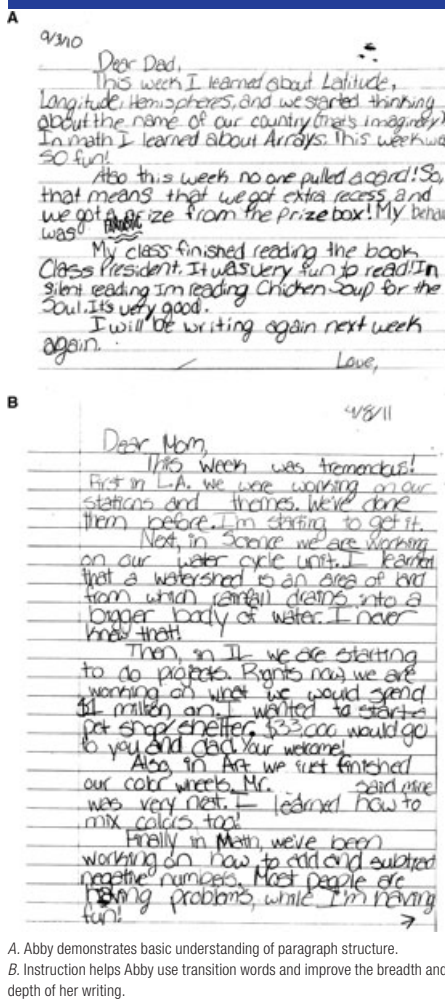 A
9/3/10
Dear Dad,
This week I learned about Latitude,
Longitude, Hemispheres, and we started thinking
about the name of our country (that's imaginary)
In math I learned about Arrays. This week wa
so fun!
Also this week no one pulled a card! So,
that means that we got extra recess and
we got a prize from the prize box! My behav
was
My class finished reading the book
Class President. It was very fun to read! In
silent reading Im reading Chicken Soup for the
Soul. It's very good.
I will be writing again next week
again.
Love,
B
4/8/11
Dear Mom,
This week was tremendous!
First in L.A. we were working on our
stations and themes. We've done
them before. I'm starting to get it.
Next, in Science we are working
on our water cycle unit. I learned
that a watershed is an area of land
from which rainfall drains into a
bigger body of water. I never
knew that!
Then, in IL we are starting
to do projects. Rights now, we are
working on what we would spend
$1 million on. I wanted to start a
pet shop/shelter. $33,000 would go
to you and dad. Your welcome!
Also, in Art we just finished
our color wheels. Mr. said mine
was very neat. I learned how to
mix colors, too!
Finally in Math, we've been
working on how to add and subtract
negative numbers. Most people are
having problems, while I'm having
fun! →
A. Abby demonstrates basic understanding of paragraph structure.
B. Instruction helps Abby use transition words and improve the breadth and
depth of her writing.